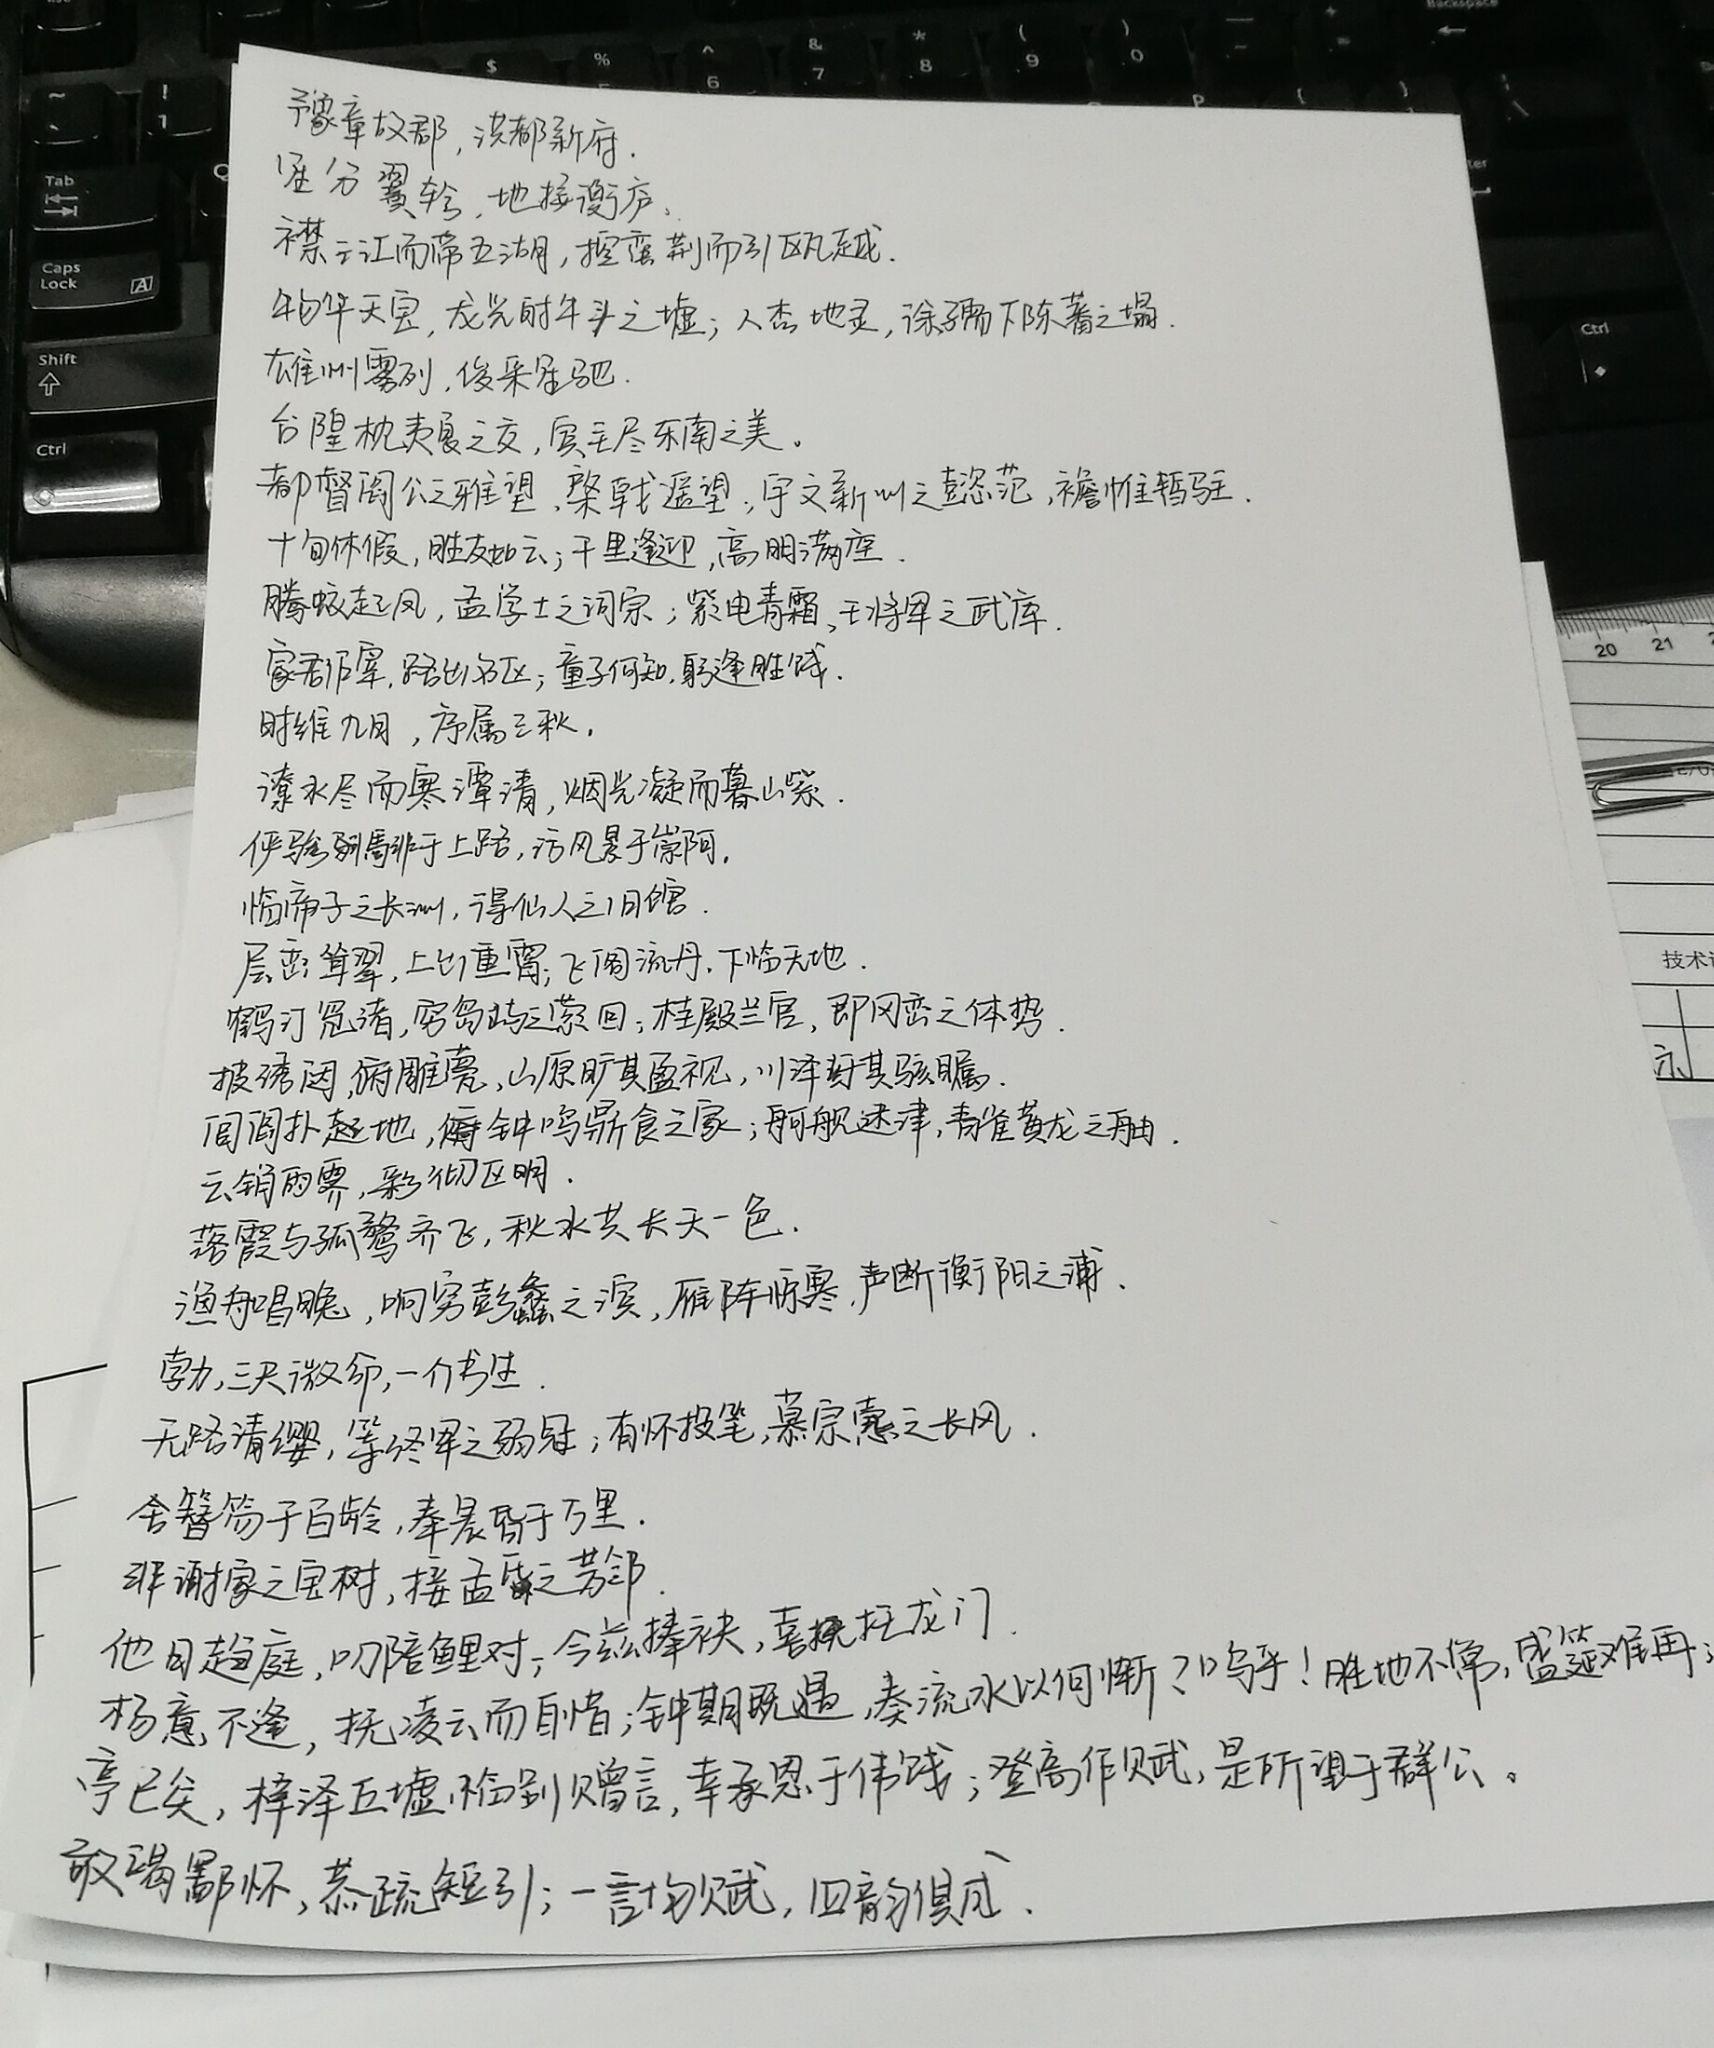 ~
!
1
$
%
^
6
&
7
*
8
(
9
)
0
Backspace
Tab
Q
P
Caps Lock
A
Shift
Ctrl
Ctrl
20 21
技术
示
豫章故郡，洪都新府.
星分翼轸，地接衡庐.
襟三江而带五湖，控蛮荆而引瓯越.
物华天宝，龙光射牛斗之墟；人杰地灵，徐孺下陈蕃之榻.
雄州雾列，俊采星驰.
台隍枕夷夏之交，宾主尽东南之美。
都督阎公之雅望，棨戟遥望；宇文新州之懿范，襜帷暂驻.
十旬休假，胜友如云；千里逢迎，高朋满座.
腾蛟起凤，孟学士之词宗；紫电青霜，王将军之武库.
家君作宰，路出名区；童子何知，躬逢胜饯.
时维九月，序属三秋.
潦水尽而寒潭清，烟光凝而暮山紫.
俨骖騑于上路，访风景于崇阿.
临帝子之长洲，得仙人之旧馆.
层峦耸翠，上出重霄；飞阁流丹，下临天地.
鹤汀凫渚，穷岛屿之萦回；桂殿兰宫，即冈峦之体势.
披绣闼，俯雕甍，山原旷其盈视，川泽纡其骇瞩.
闾阎扑起地，钟鸣鼎食之家；舸舰迷津，青雀黄龙之舳.
云销雨霁，彩彻区明.
落霞与孤鹜齐飞，秋水共长天一色.
渔舟唱晚，响穷彭蠡之滨，雁阵惊寒，声断衡阳之浦.
勃，三尺微命，一介书生.
无路请缨，等终军之弱冠；有怀投笔，慕宗悫之长风.
舍簪笏于百龄，奉晨昏于万里.
非谢家之宝树，接孟氏之芳邻.
他日趋庭，叨陪鲤对；今兹捧袂，喜托龙门.
杨意不逢，抚凌云而自惜；钟期既遇，奏流水以何惭？呜乎！胜地不常，盛筵难再；
亭已矣，梓泽丘墟.临别赠言，幸承恩于伟饯；登高作赋，是所望于群公。
敢竭鄙怀，恭疏短引；一言均赋，四韵俱成.